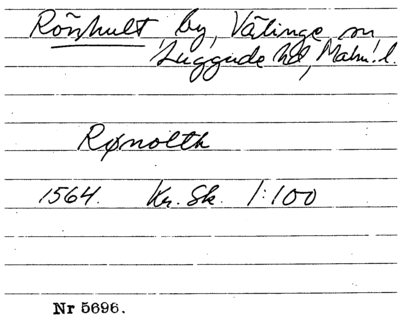 Rönhult, by, Välinge sn
Luggude hd, Malm. l.
Rønolth
1564. Kr. Sk. 1:100
Nr 5696.